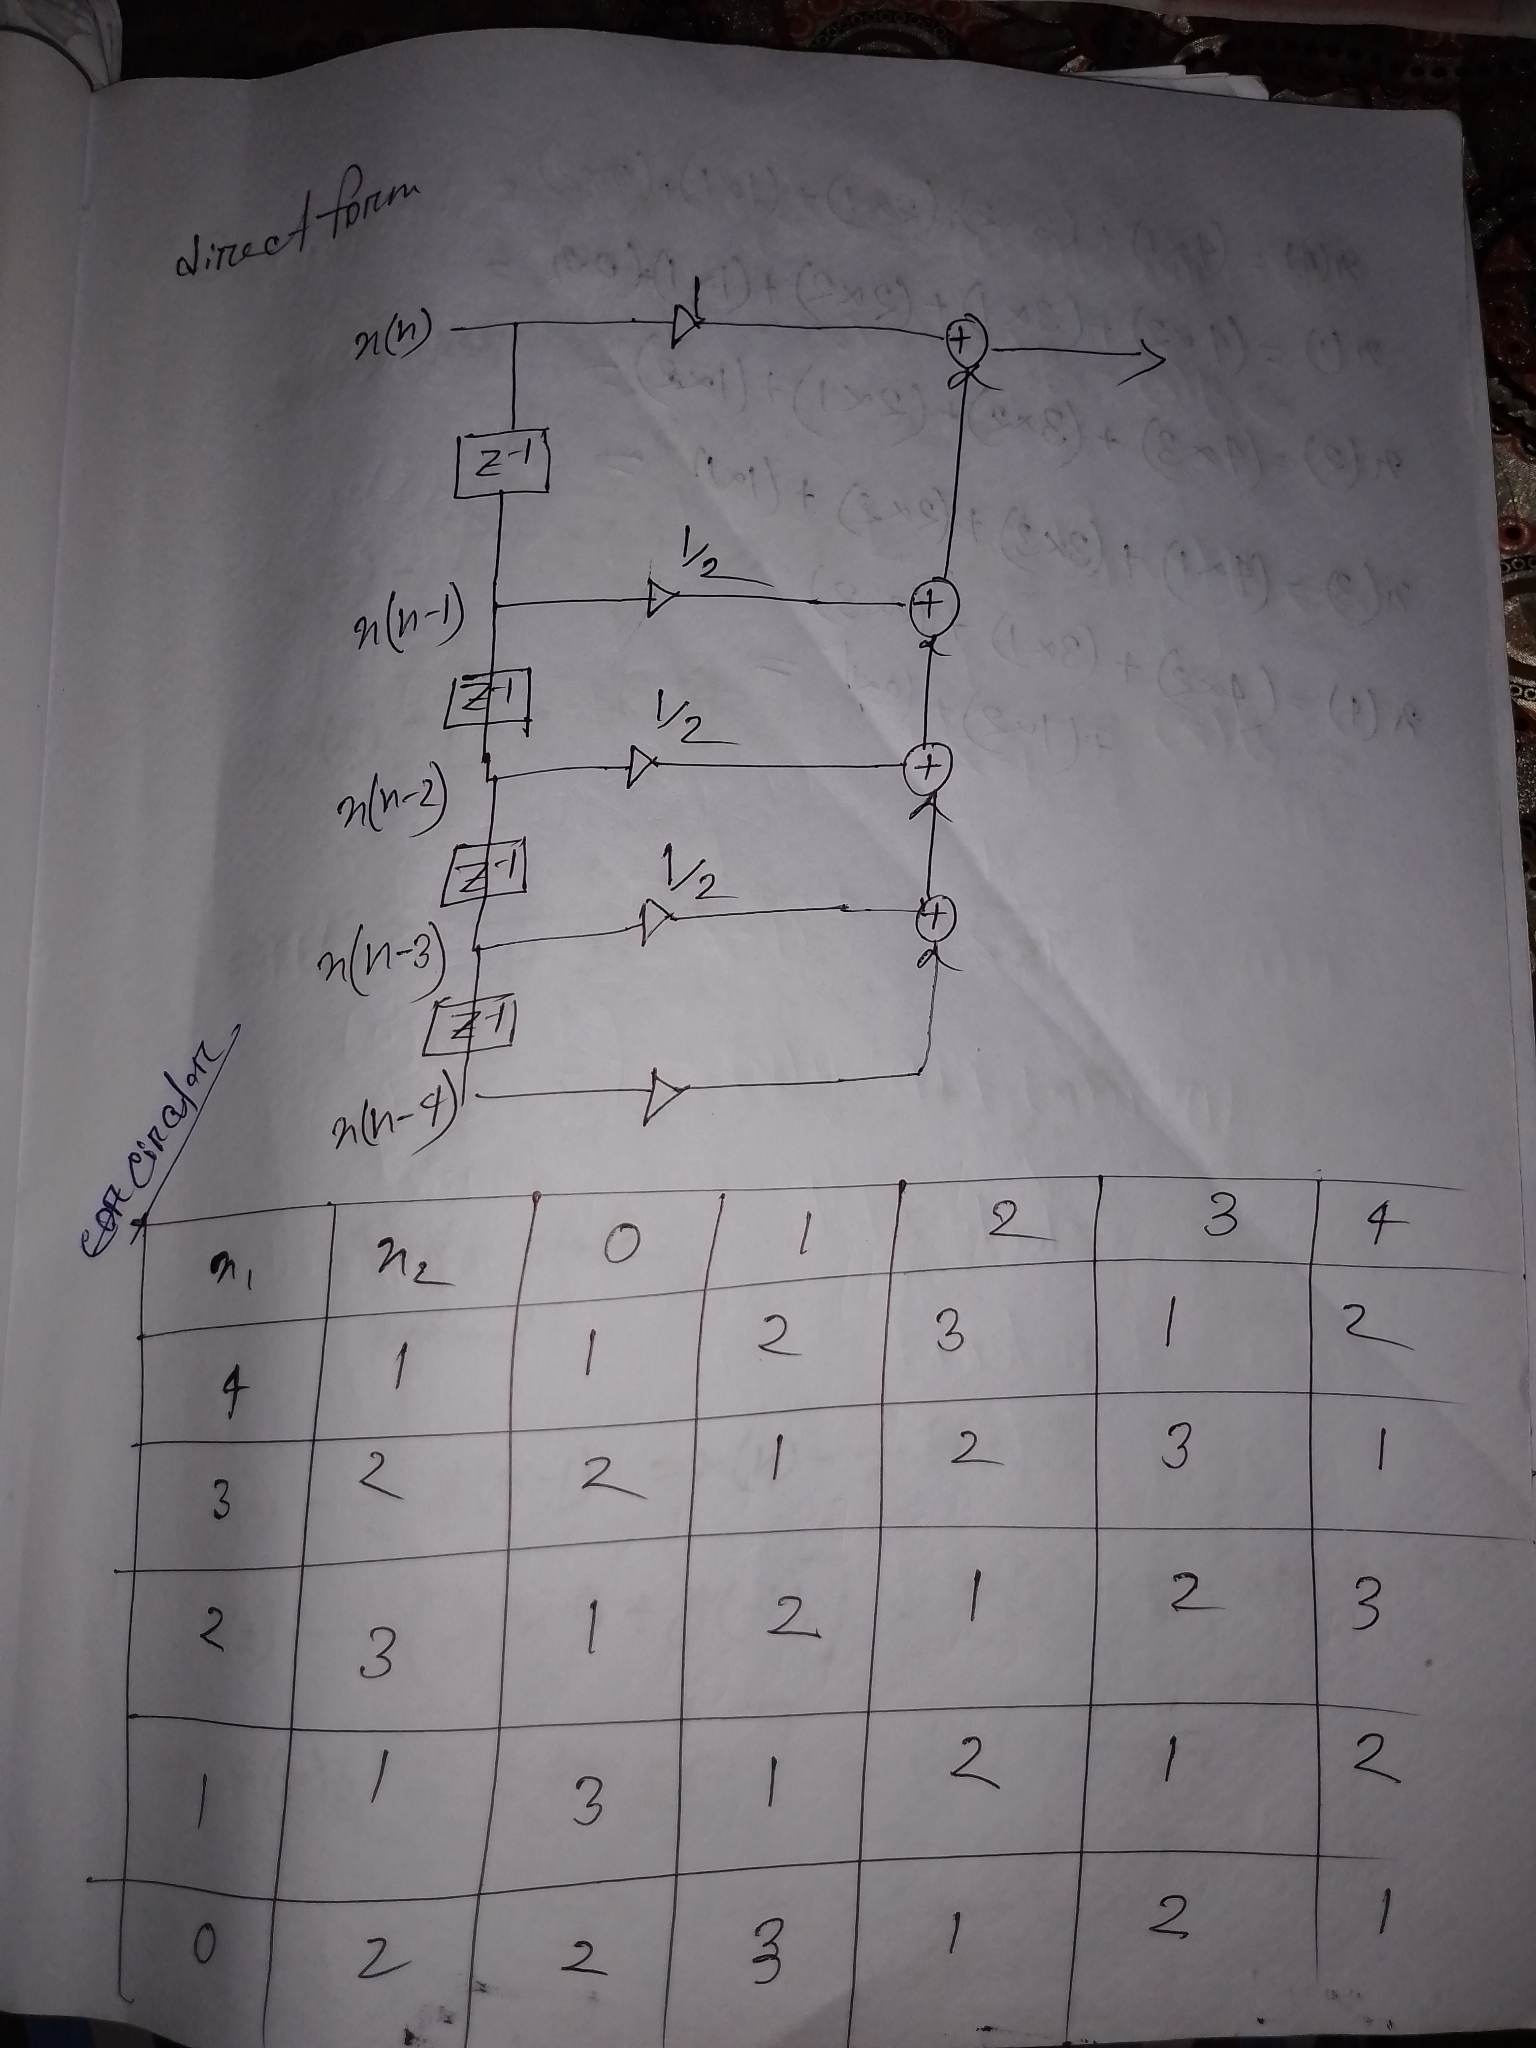 direct form
x(n)
1
+
z-1
1/2
x(n-1)
+
z-1
1/2
x(n-2)
+
z-1
1/2
x(n-3)
+
z-1
x(n-4)
x1 x2 0 1 2 3 4
4 1 1 2 3 1 2
3 2 2 1 2 3 1
2 3 1 2 1 2 3
1 1 3 1 2 1 2
0 2 2 3 1 2 1